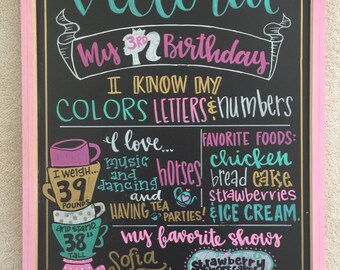 My 3RD Birthday
I KNOW MY
COLORS LETTERS & numbers
I love...
music
and
dancing
and
HAVING TEA
PARTIES!
horses
I WEIGH...
39
POUNDS
and STAND
38"
TALL
FAVORITE FOODS:
chicken
bread cake
strawberries
& ICE CREAM.
my favorite shows
Sofia
Strawberry